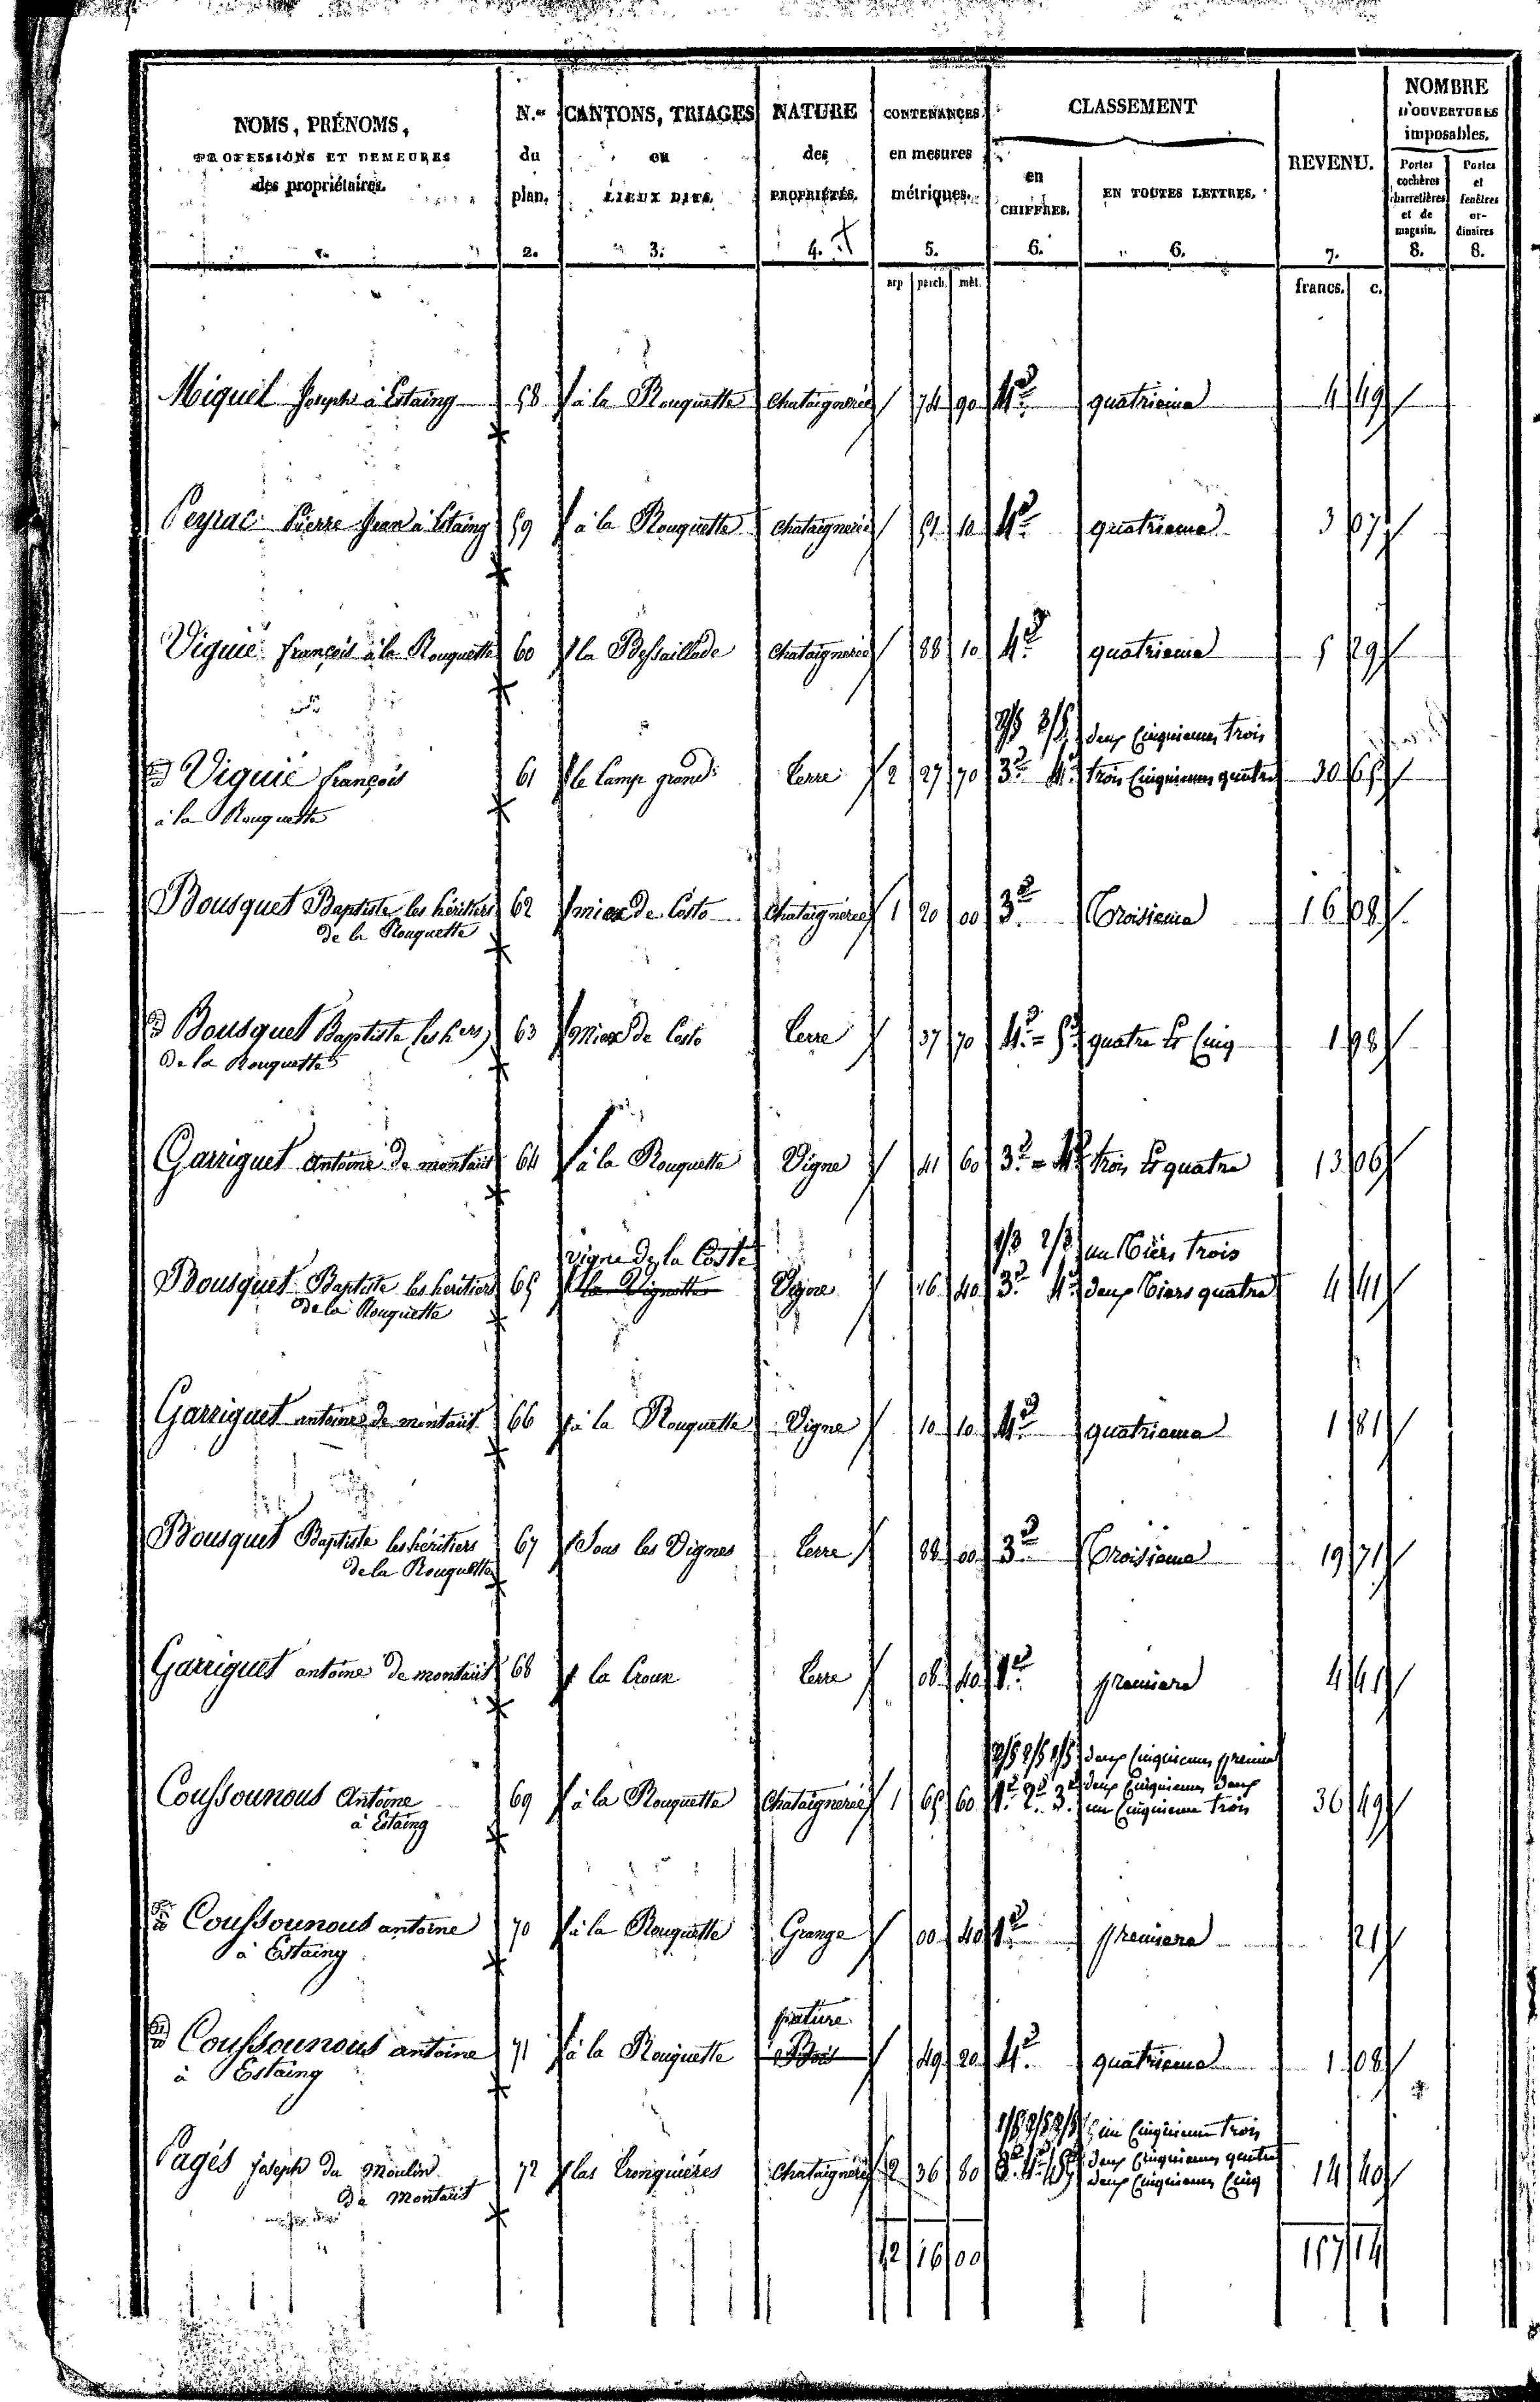 NOMS, PRÉNOMS, PROFESSIONS ET DEMEURES des propriétaires. 1.
N.os du plan. 2.
CANTONS, TRIAGES ou LIEUX DITS. 3.
NATURE des PROPRIÉTÉS. 4.
CONTENANCES en mesures métriques. 5.
CLASSEMENT
en CHIFFRES. 6.
EN TOUTES LETTRES. 6.
REVENU. 7.
NOMBRE D'OUVERTURES imposables.
Portes cochères charretières et de magasin. 8.
Portes et fenêtres ordinaires 8.
arp perch. mèt. francs. c.
Miquel Joseph à Estaing 58 à la Rouquette Chataigneraie 74 90 4e quatrieme 4 49
Peyrac Pierre Jean à Estaing 59 à la Rouquette Chataigneraie 51 10 4e quatrieme 3 07
Viguié françois à la Rouquette 60 la Bessaillade Chataigneraie 88 10 4e quatrieme 5 29
2/5 3/5 deux Cinquiemes trois
d Viguié françois 61 le Camp grand Terre 2 27 70 3e 4e trois Cinquiemes quatre 30 65
à la Rouquette
Bousquet Baptiste les héritiers 62 de Costo Chataigneraie 1 20 00 3e Troisieme 16 08
de la Rouquette
d Bousquet Baptiste les hers 63 de Costo Terre 37 70 4e = 5e quatre Et Cinq 1 98
De la Rouquette
Garriguet antoine de montaut 64 à la Rouquette Vigne 41 60 3e = 4e trois Et quatre 13 06
vigne de la Coste 1/3 2/3 un Tiers trois
Bousquet Baptiste les heritiers 65 la Vignette Vigne 16 40 3e 4e deux Tiers quatre 4 41
de la Rouquette
Garriguet antoine de montaut 66 à la Rouquette Vigne 10 10 4e quatrieme 1 81
Bousquet Baptiste les héritiers 67 Sous les Vignes Terre 88 00 3e Troisieme 19 71
de la Rouquette
Garriguet antoine de montaut 68 la Croux Terre 08 40 1e premiere 4 41
2/5 2/5 1/5 deux Cinquiemes premiere
Coussounous Antoine 69 à la Rouquette Chataigneraie 1 65 60 1e 2e 3e deux Cinquiemes deux 36 49
à Estaing un Cinquieme trois
d Coussounous antoine 70 à la Rouquette Grange 00 40 1e premiere 21
à Estaing
pature
d Coussounous antoine 71 à la Rouquette Bois 49 20 4e quatrieme 1 08
à Estaing
1/5 2/5 2/5 un Cinquieme trois
Pagès joseph du Moulin 72 las Tronquières Chataigneraie 2 36 80 3e 4e 5e deux Cinquiemes quatre 14 40
De Montaut deux Cinquiemes Cinq
12 16 00 157 14